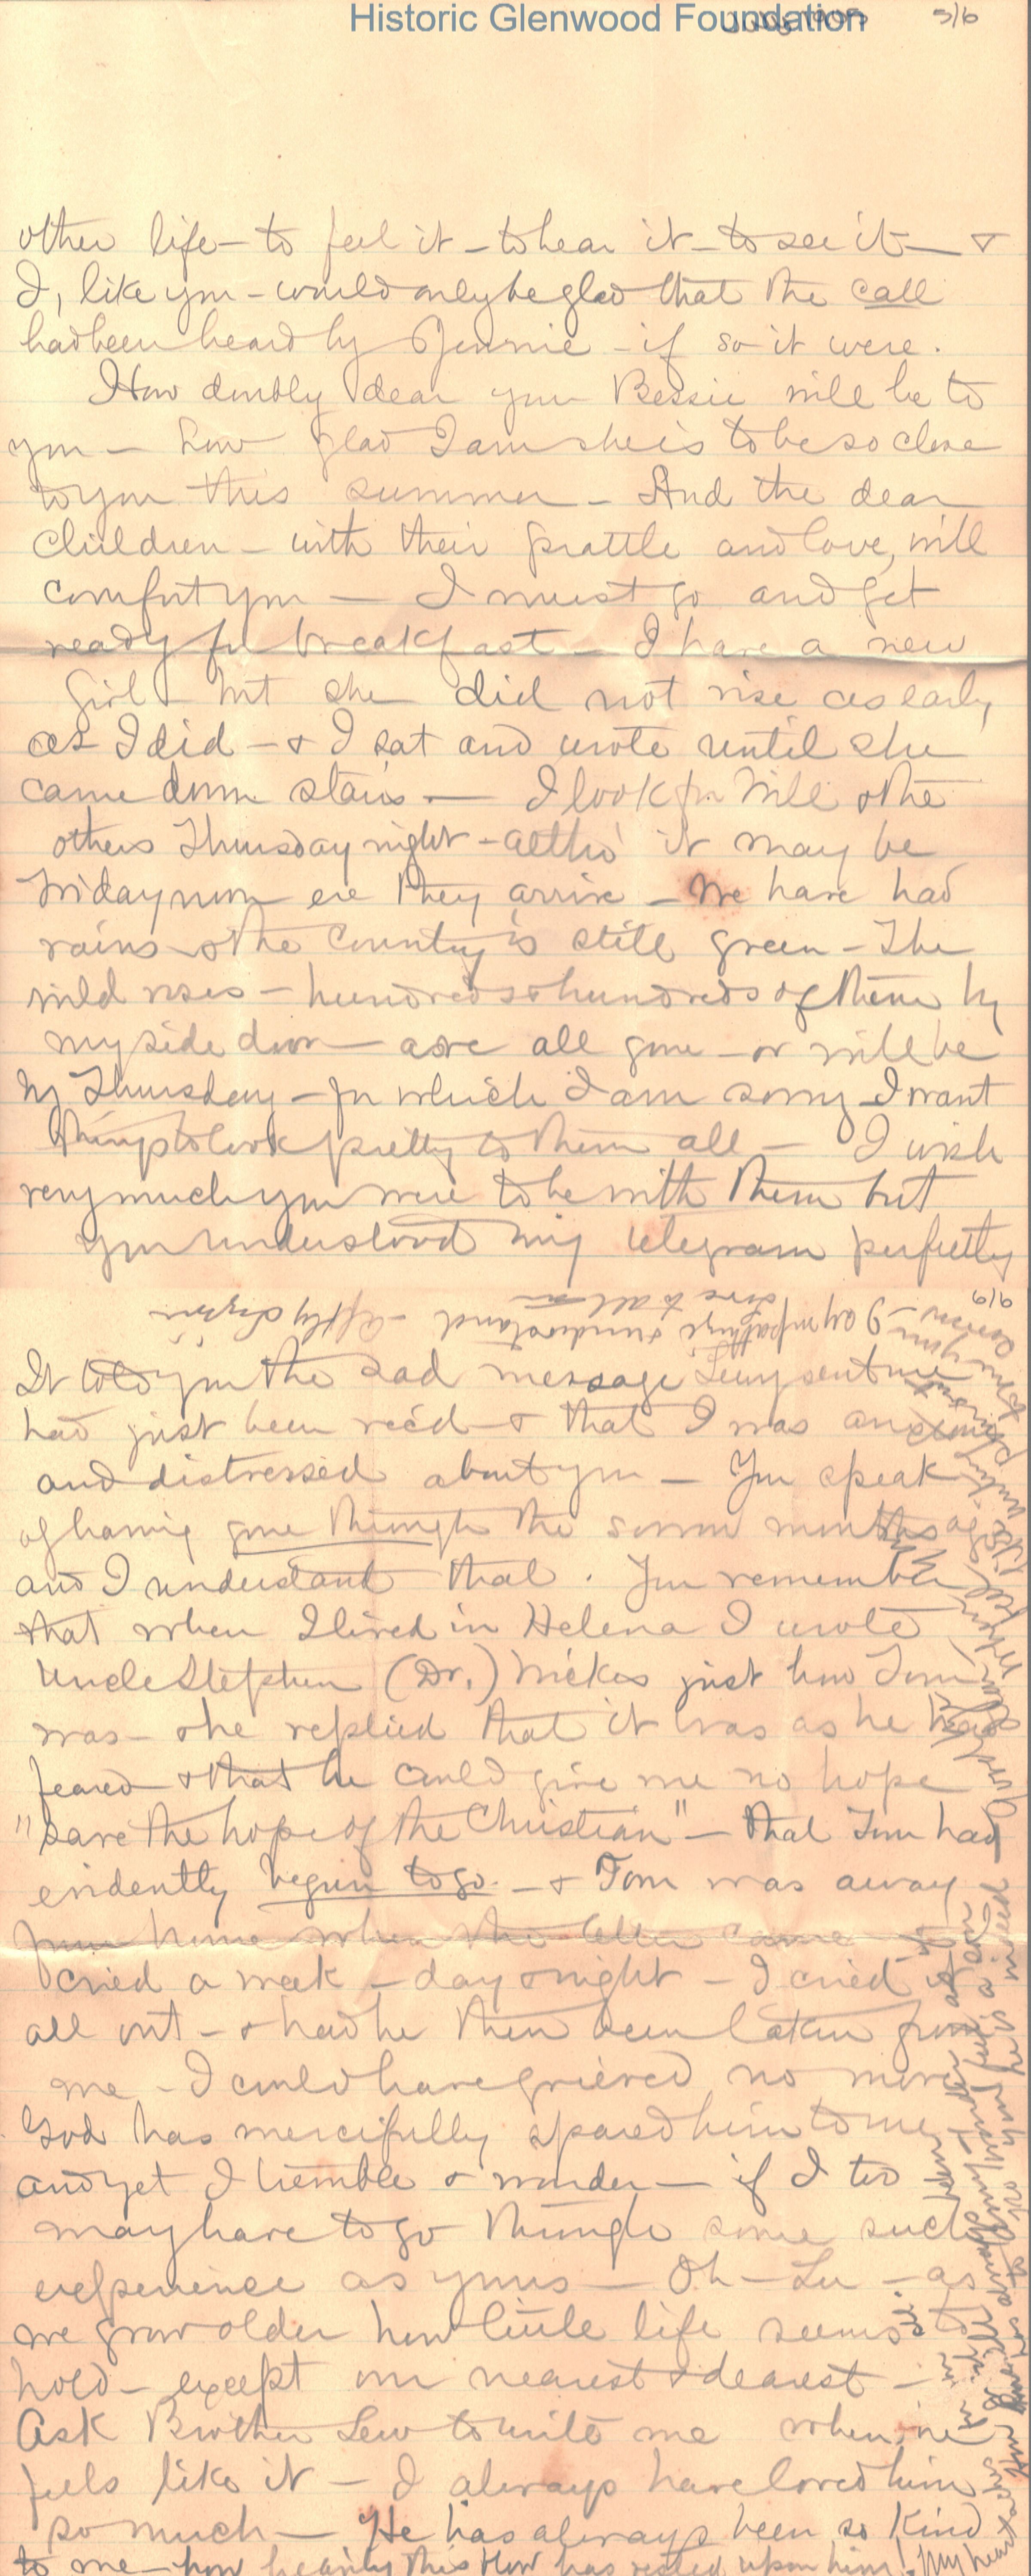 Historic Glenwood Foundation
5/6
other life - to feel it - to hear it - to see it - &
I, like you - would only be glad that the call
had been heard by Jennie - if so it were.
How doubly dear your Bessie will be to
you - how glad I am she is to be so close
to you this summer - And the dear
children - with their prattle and love, will
comfort you - I must go and get
ready for breakfast - I have a new
girl - but she did not rise as early
as I did - & I sat and wrote until she
came down stairs. - I look for Will & the
others Thursday night - altho' it may be
Friday noon ere they arrive - We have had
rains & the country is still green - The
wild roses - hundreds & hundreds of them by
my side door - are all gone - or will be
by Thursday - for which I am sorry I want
things to look pretty to them all - I wish
very much you were to be with them but
you understood my telegram perfectly
6/6
sorrow - I sympathize & understand - Affly
love to all
It told you the sad message Lucy sent me
had just been rec'd - & that I was anxious
and distressed about you - You speak
of having gone through the sorrow months ago
and I understand that. You remember
that when I lived in Helena I wrote
Uncle Stephen (Dr.) just how Tom
was - & he replied that it was as he had
feared & that he could give me no hope
"save the hope of the Christian" - that Tom had
evidently begun to go. - & Tom was away
from home when the letter came - I
cried a week - day & night - I cried it
all out - & had he then been taken from
me - I could have grieved no more
God has mercifully spared him to me
and yet I tremble & wonder - if I too
may have to go through some such
experience as yours - Oh - Lu - as
we grow older how little life seems to
hold - except our nearest & dearest -
Ask Brother Lew to write me when he
feels like it - I always have loved him
so much - He has always been so kind
to me - how heavily this blow has rested upon him! My heart